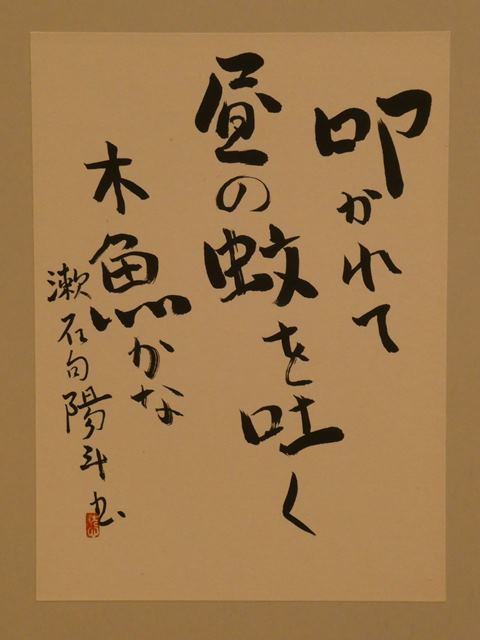 叩かれて
昼の蚊を吐く
木魚かな
漱石句陽斗書